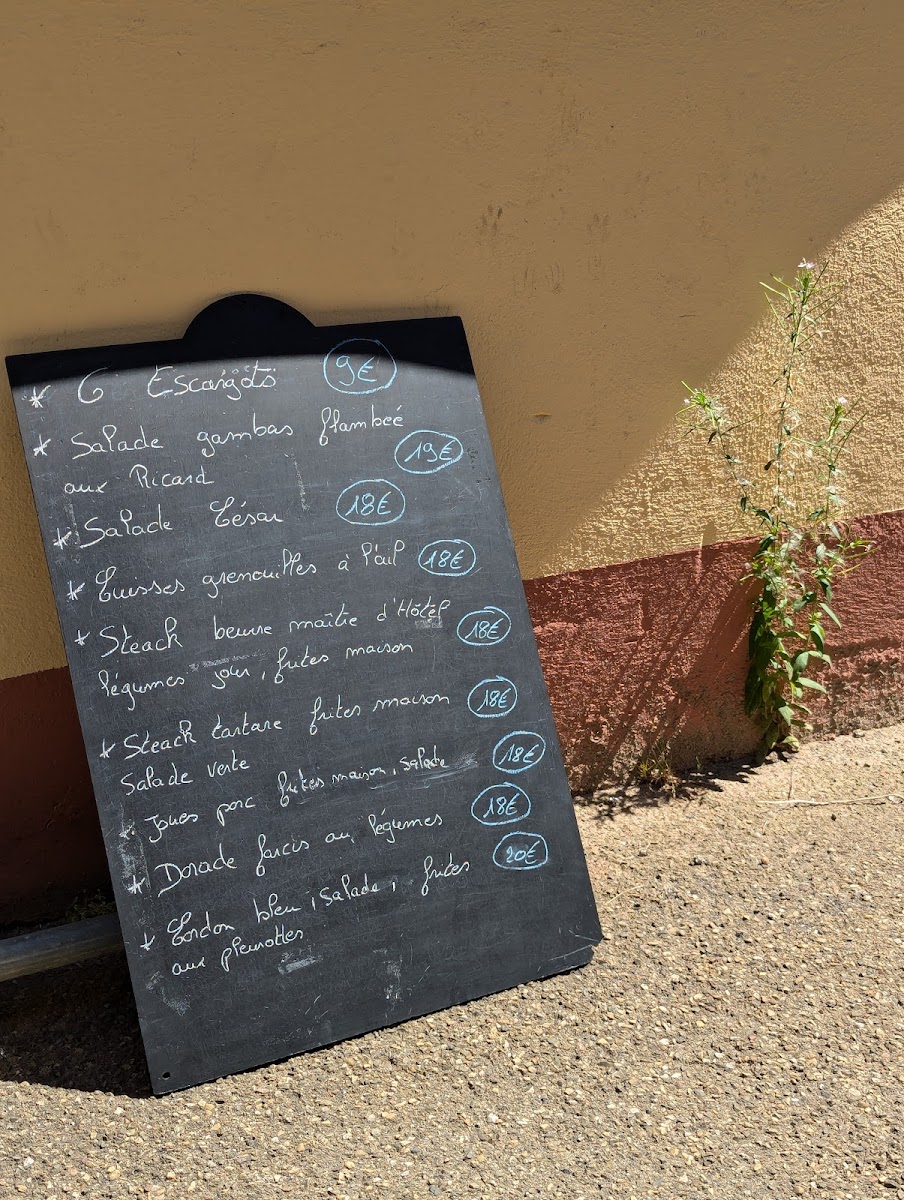 * 6 Escargots 9€
* Salade gambas flambeé
aux Ricard 19€
* Salade César 18€
* Cuisses grenouilles à l'ail 18€
* Steack beurre maître d'Hôtel 18€
légumes jour, frites maison
* Steack tartare frites maison 18€
Salade verte
* Joues porc frites maison, salade 18€
* Dorade farcis au, légumes 18€
* Cordon bleu, salade, frites 20€
aux pleurottes